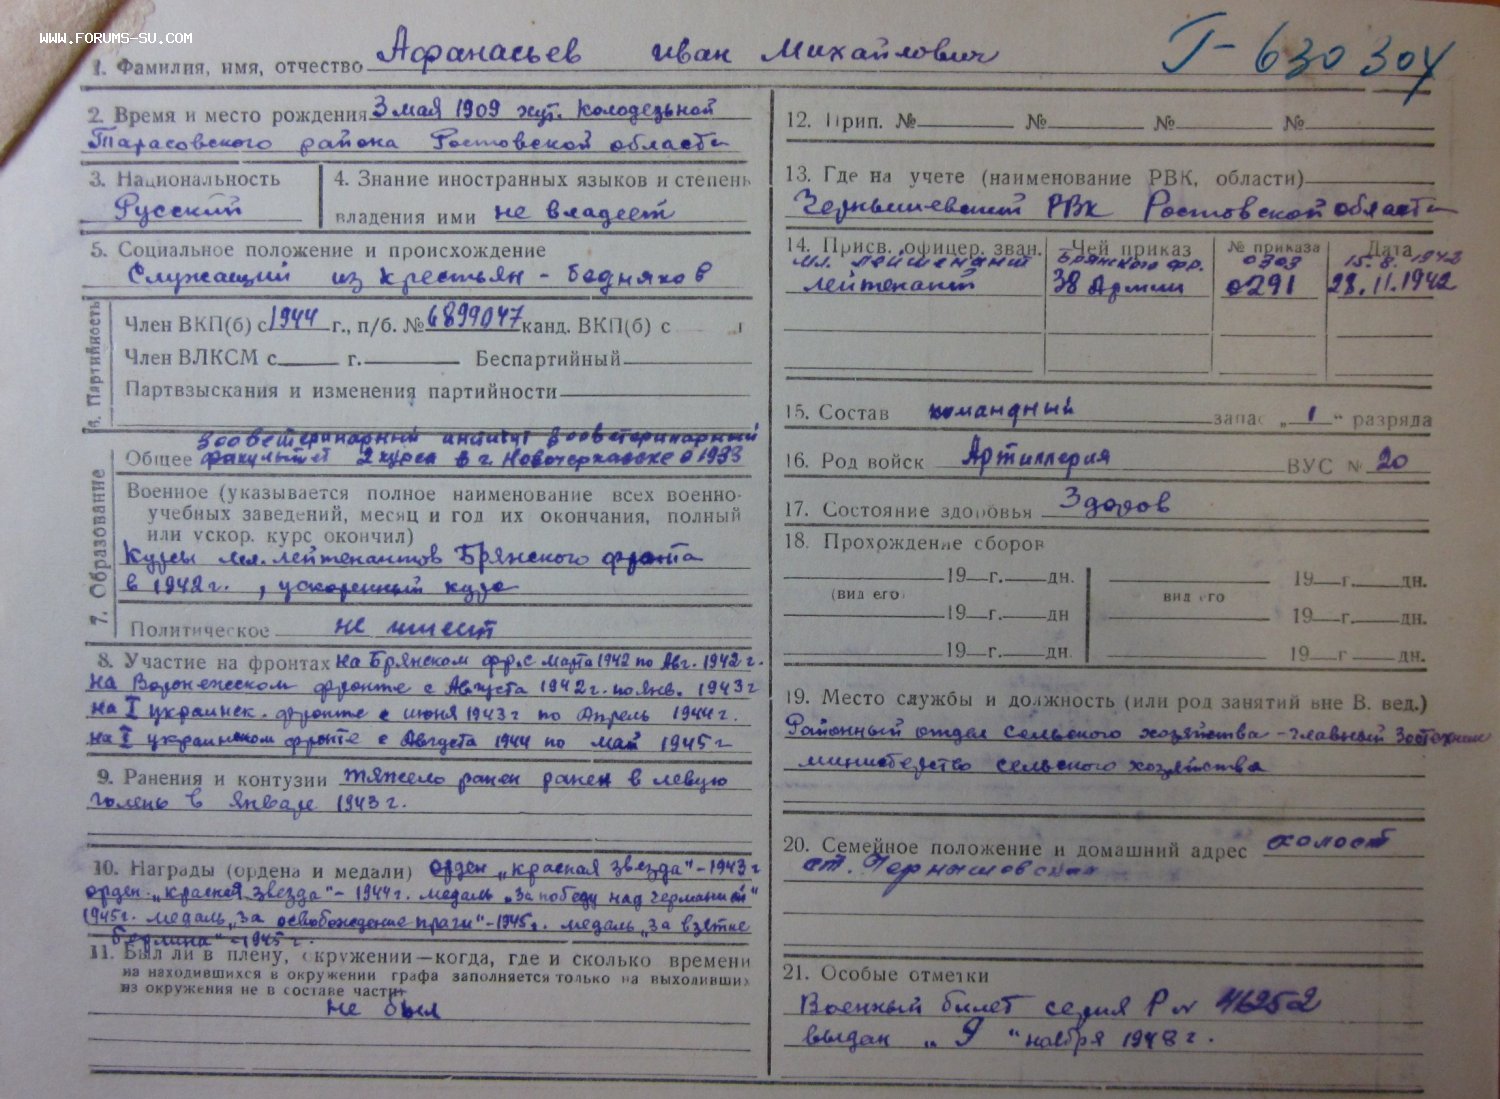 WWW.FORUMS-SU.COM
Г-630304
1. Фамилия, имя, отчество Афанасьев Иван Михайлович
2. Время и место рождения 3 мая 1909 хут. Колодезьной
Тарасовского района Ростовской области
3. Национальность
Русский
4. Знание иностранных языков и степень
владения ими не владеет
5. Социальное положение и происхождение
Служащий из крестьян - бедняков
6. Партийность
Член ВКП(б) с 1944 г., п/б. № 6899047 канд. ВКП(б) с г
Член ВЛКСМ с г. Беспартийный
Партвзыскания и изменения партийности
7. Образование
зооветеринарный институт зооветеринарный
Общее факультет 2 курса в г. Новочеркасске в 1933
Военное (указывается полное наименование всех военно-
учебных заведений, месяц и год их окончания, полный
или ускор. курс окончил)
Курсы мл. лейтенантов Брянского фронта
в 1942 г., ускоренный курс
Политическое не имеет
8. Участие на фронтах на Брянском фр. с марта 1942 по Авг. 1942 г.
на Воронежском фронте с Августа 1942 г. по янв. 1943 г
на I украинск. фронте с июня 1943 г по Апрель 1944 г.
на I украинском фронте с Августа 1944 по май 1945 г
9. Ранения и контузии тяжело ранен ранен в левую
голень в январе 1943 г.
10. Награды (ордена и медали) орден „красная звезда" - 1943 г
орден „красная звезда" - 1944 г. медаль „за победу над германией"
1945 г. медаль „за освобождение праги" - 1945 г. медаль „за взятие
берлина" - 1945 г.
11. Был ли в плену, окружении—когда, где и сколько времени
на находившихся в окружении графа заполняется только на выходивших
из окружения не в составе части
не был
12. Прип. № № № №
13. Где на учете (наименование РВК, области)
Чернышевский РВК Ростовской области
14. Присв. офицер. зван. Чей приказ № приказа Дата
мл. лейтенант Брянского фр. 0303 15.8.1942
лейтенант 38 Армии 0291 28.11.1942
15. Состав командный запас „1" разряда
16. Род войск Артиллерия ВУС № 20
17. Состояние здоровья Здоров
18. Прохождение сборов
19 г. дн. 19 г. дн.
(вид его) вид его
19 г. дн 19 г. дн.
19 г. дн. 19 г. дн.
19. Место службы и должность (или род занятий вне В. вед.)
Районный отдел сельского хозяйства - главный зоотехник
министерство сельского хозяйства
20. Семейное положение и домашний адрес холост
ст. Чернышовская
21. Особые отметки
Военный билет серия Р № 46252
выдан „9" ноября 1948 г.